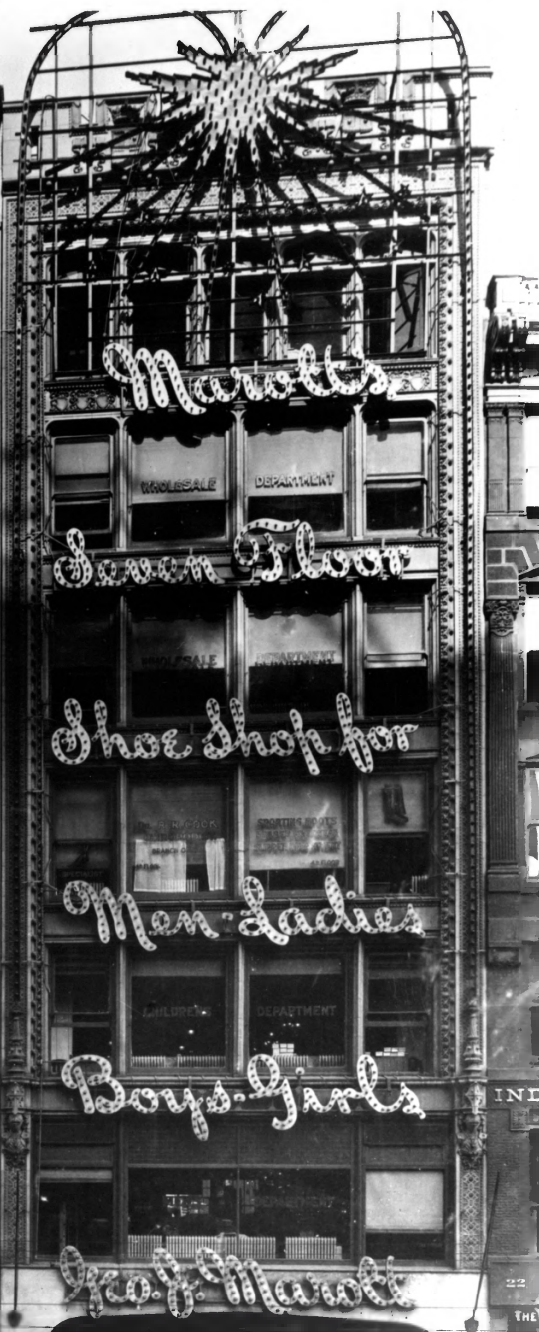 Marott's
WHOLESALE DEPARTMENT
Seven Floor
WHOLESALE DEPARTMENT
Shoe Shop for
SPORTING BOOTS
Men-Ladies
CHILDRENS DEPARTMENT
Boys-Girls
IND
DEPARTMENT
Geo. J. Marott
22
THE